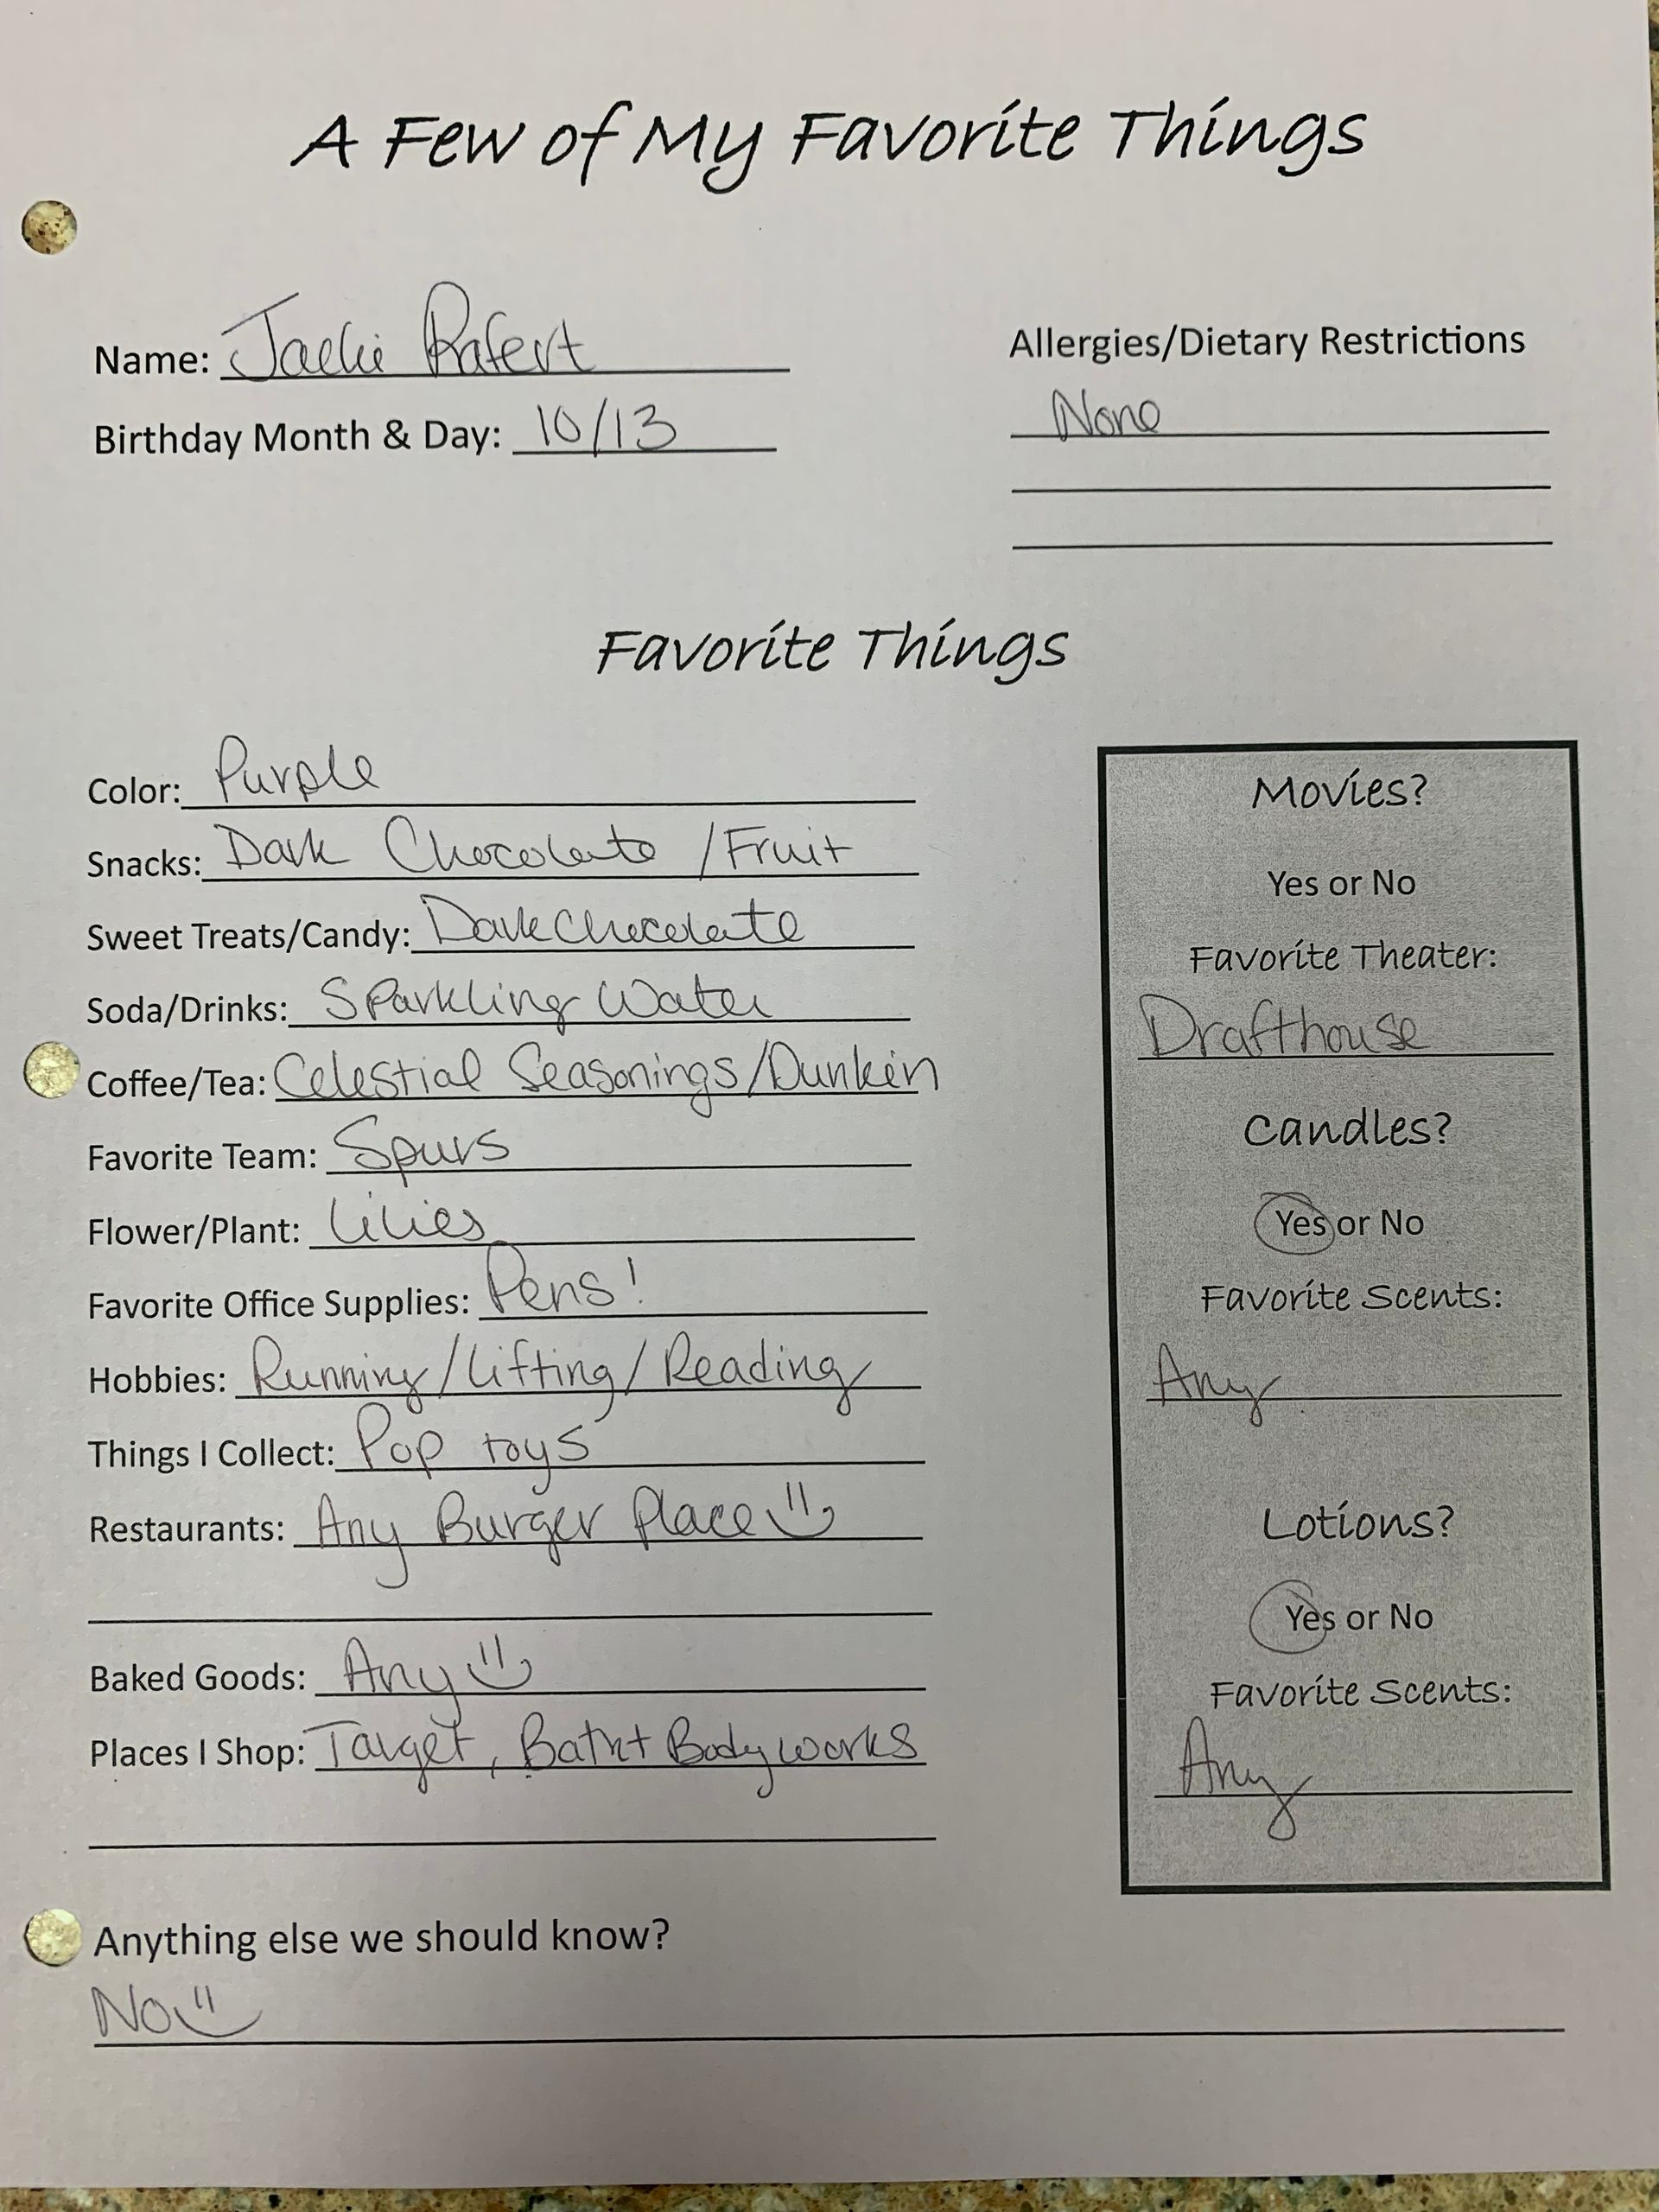 A Few of My Favorite Things
Name: Jackie Rafert
Birthday Month & Day: 10/13
Allergies/Dietary Restrictions
None
Favorite Things
Color: Purple
Snacks: Dark Chocolate / Fruit
Sweet Treats/Candy: Dark Chocolate
Soda/Drinks: Sparkling Water
Coffee/Tea: Celestial Seasonings/Dunkin
Favorite Team: Spurs
Flower/Plant: Lilies
Favorite Office Supplies: Pens!
Hobbies: Running/Lifting/Reading
Things I Collect: Pop toys
Restaurants: Any Burger Place
Baked Goods: Any
Places I Shop: Target, Bath+ Body works
Movies?
Yes or No
Favorite Theater:
Drafthouse
Candles?
Yes or No
Favorite Scents:
Any
Lotions?
Yes or No
Favorite Scents:
Any
Anything else we should know?
No